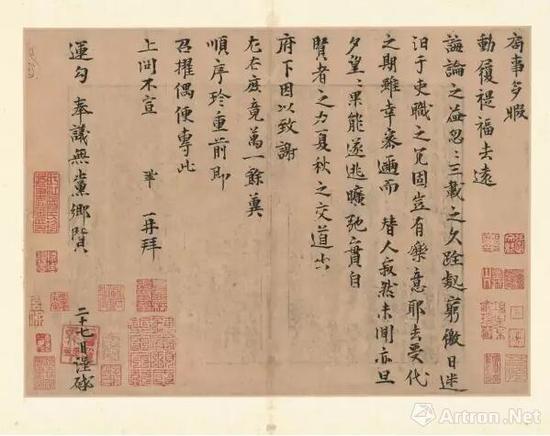 局事多暇
動履禔福去遠
誨論之益忽〻三載之久跧處窮徼日迷
汨于吏職之冗固豈有樂意耶去受代
之期雖幸密邇而 替人寂然未聞亦旦
夕望〻果能遂逃曠弛實自
賢者之力夏秋之交道出
府下因以致謝
左右庶竟萬一餘冀
順序珍重前即
召擢偶便專此
上問不宣 鞏再拜
運勾奉議無黨鄉賢
二十七日謹啓
Artron.Net